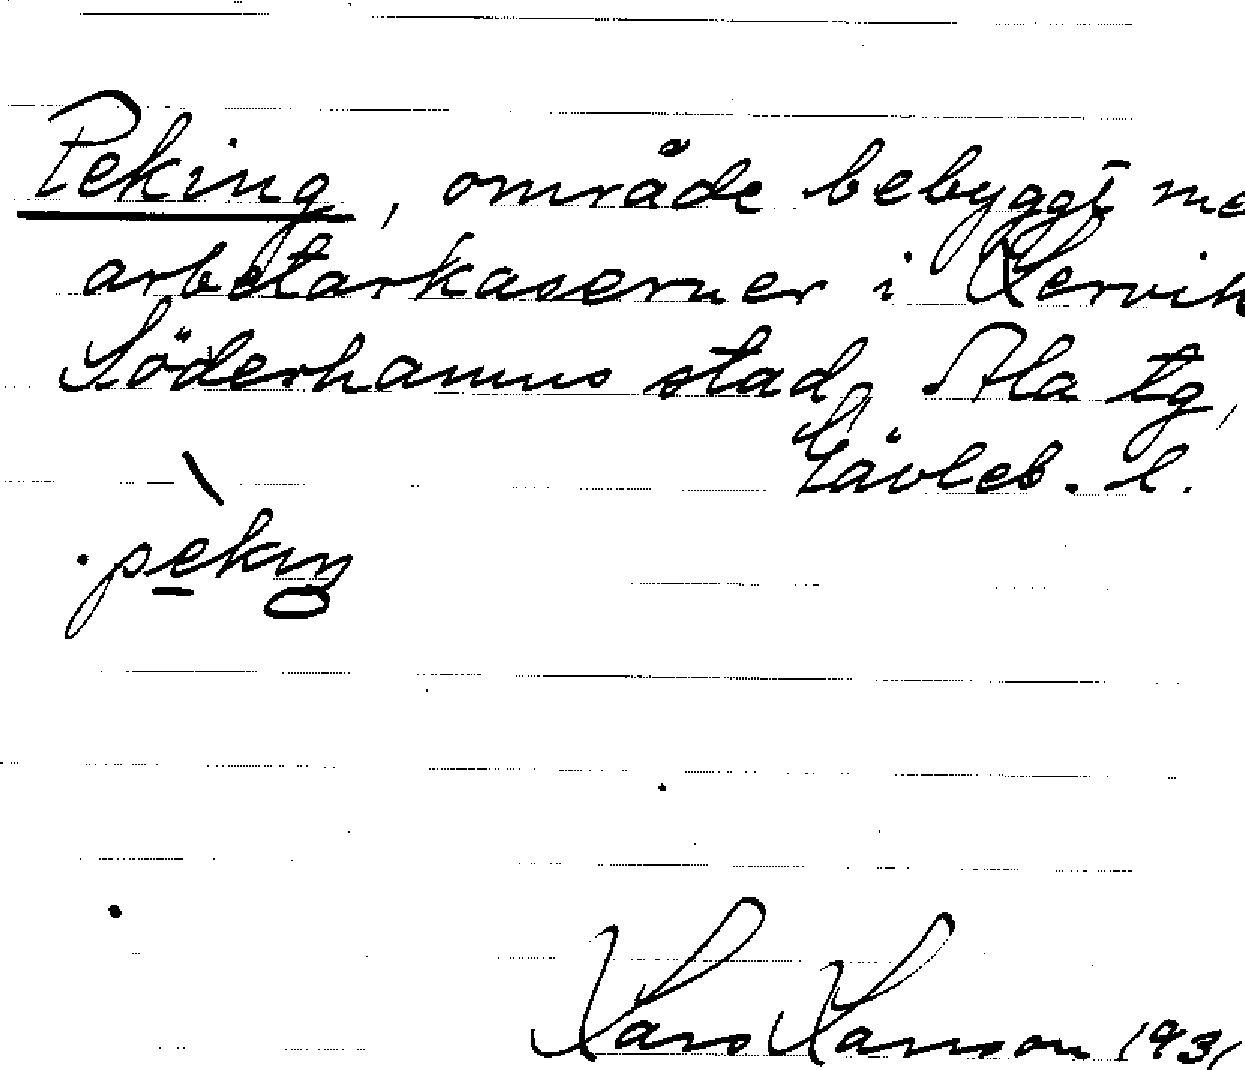 Peking, område bebyggt me
arbetarkaserner i Lervik
Söderhamns stad, Ala tg,
Gävleb. l.
. pekiŋ
1931